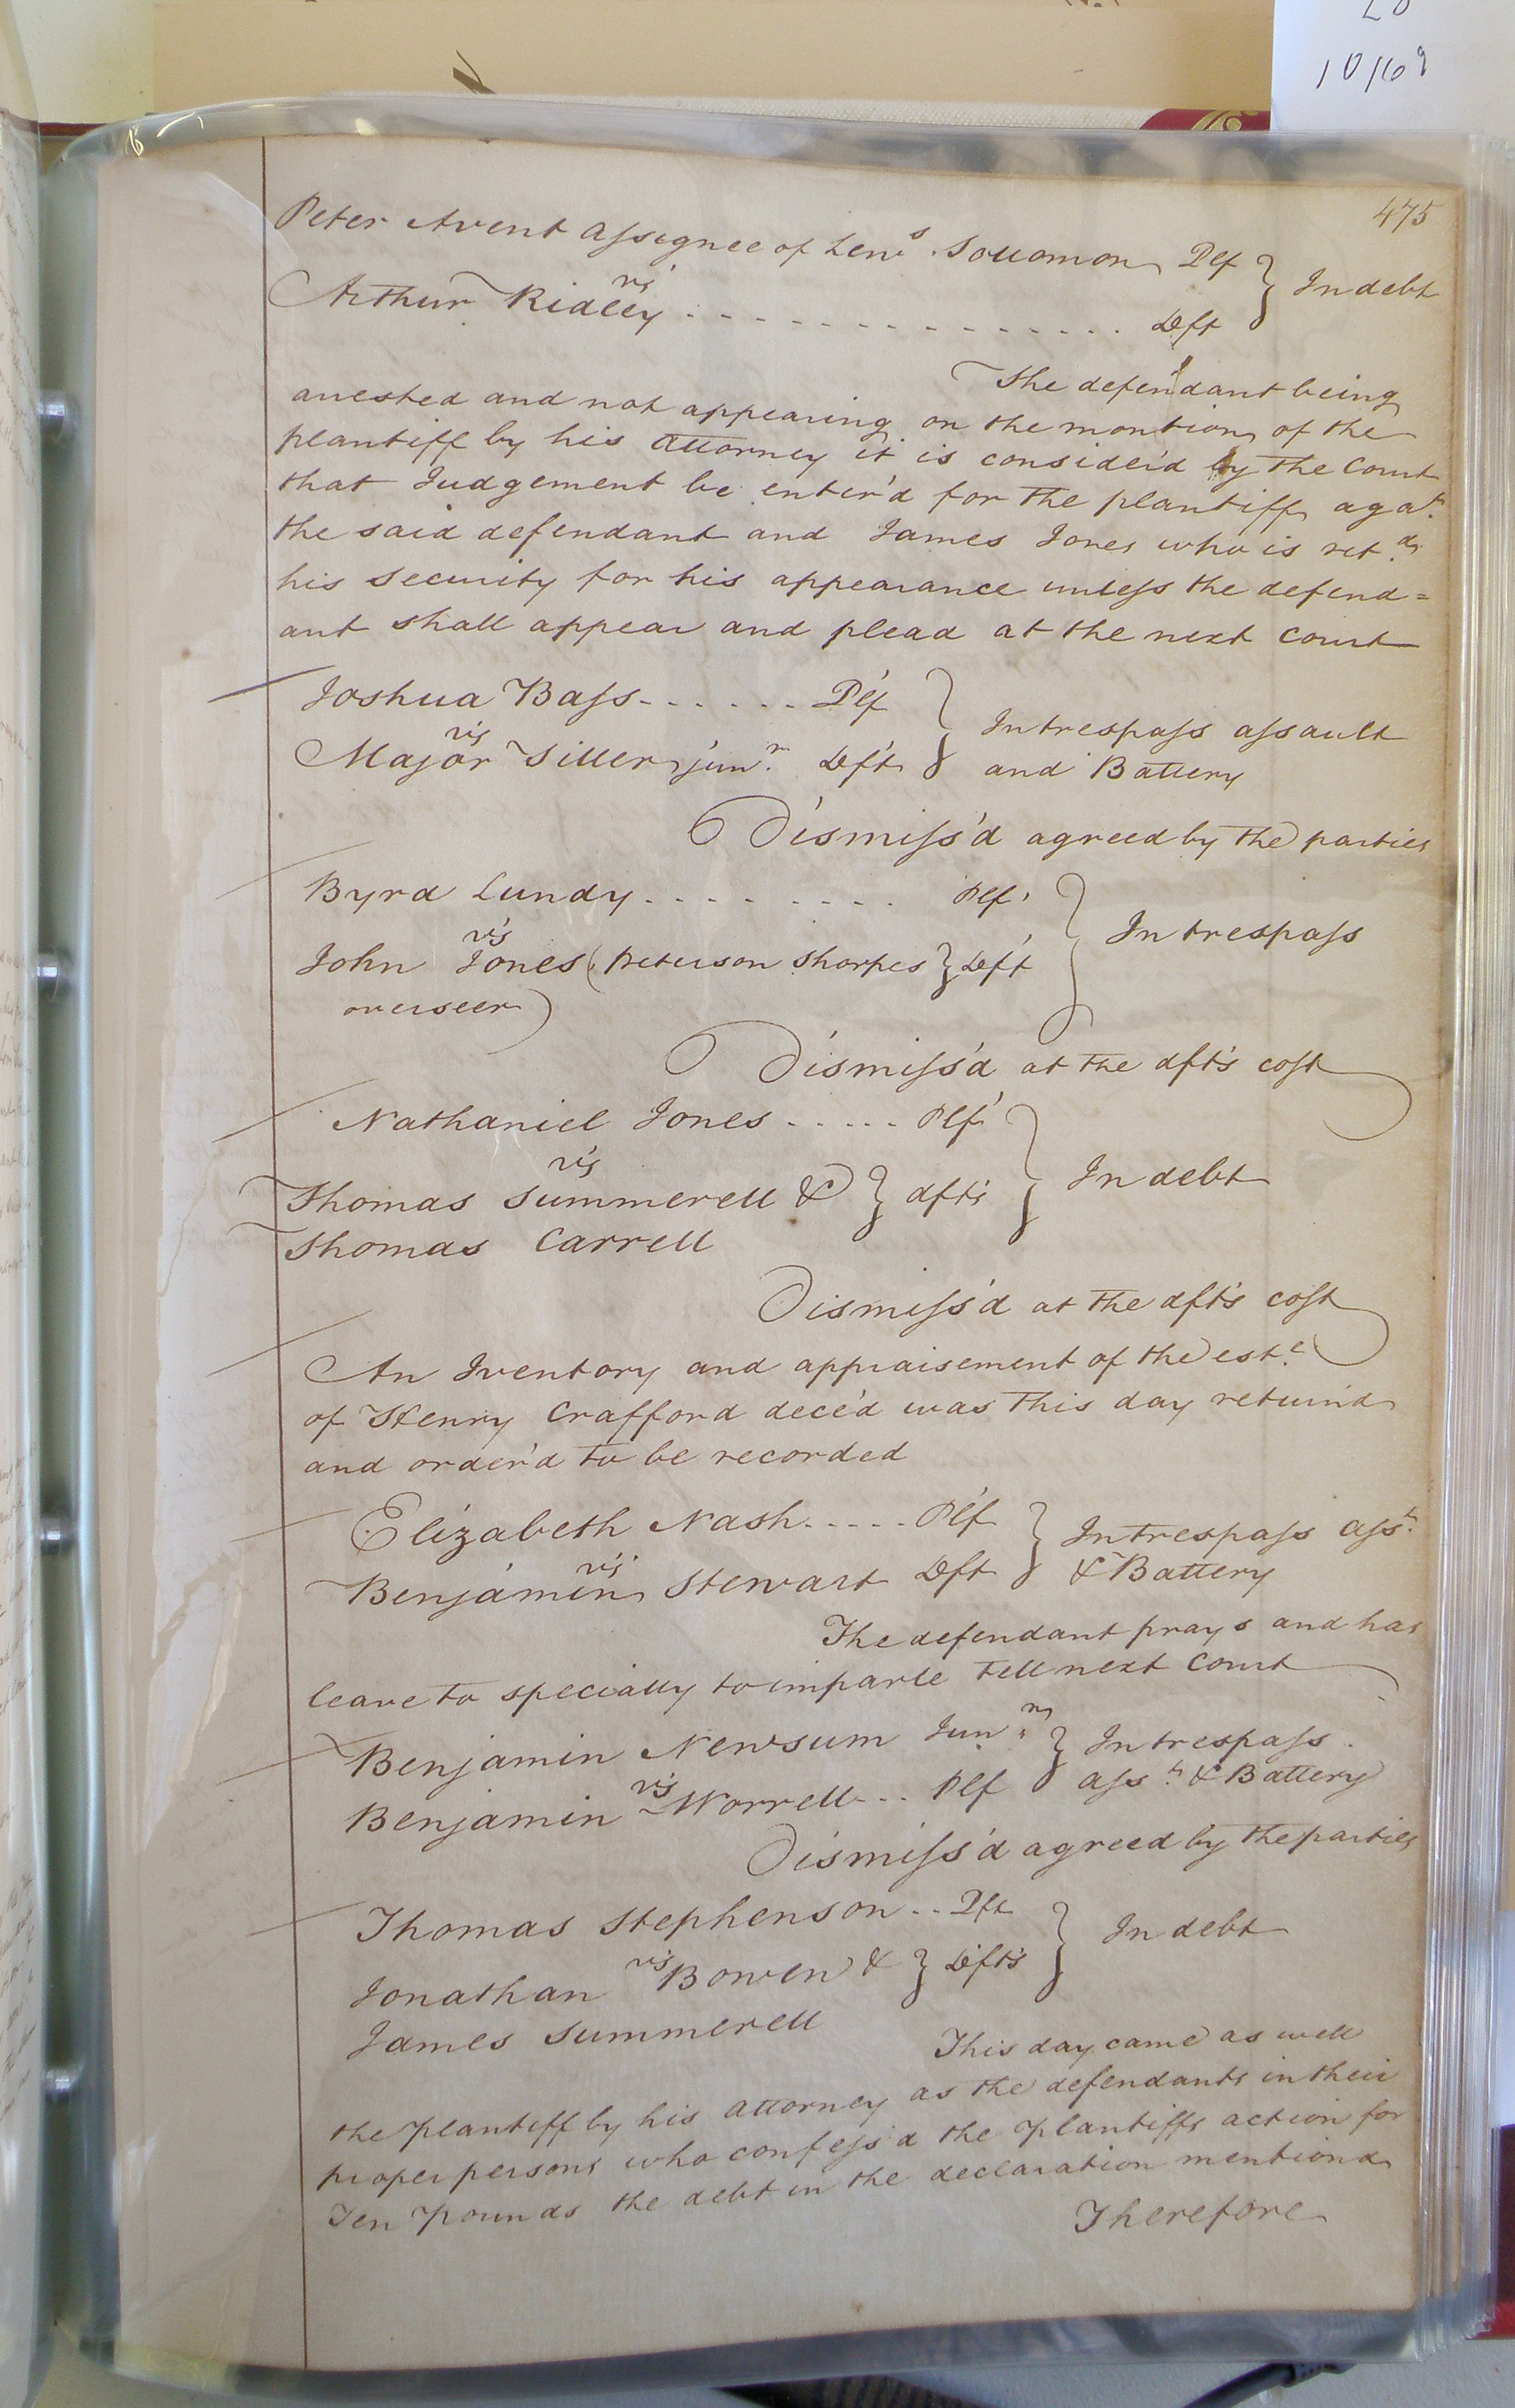 475
Peter Avent assignee of Lew.s Sollomon Plf } In debt
vs
Arthur Ridley . . . . . . . . . . . . . . . Dft
The defendant being
arrested and not appearing on the montion of the
plantiff by his attorney it is consider'd by the Court
that Judgement be enter'd for the plantiff agat.
the said defendant and James Jones who is ret.d
his security for his appearance unless the defend=
ant shall appear and plead at the next Court
Joshua Bass . . . . . . Plf } In trespass assault
vs
Major Tiller junr. Dft and Battery
Dismiss'd agreed by the parties
Byrd Lundy . . . . . . . . Plf } In trespass
vs
John Jones (Peterson Sharpes } Dft
overseer)
Dismiss'd at the dfts cost
Nathaniel Jones . . . . . Plf } In debt
vs
Thomas Summerell & } dfts
Thomas Carrell
Dismiss'd at the dfts cost
An Iventory and appraisement of the este.
of Henry Crafford dece'd was this day return'd
and order'd to be recorded
Elizabeth Nash . . . . . Plf } In trespass asst.
vs
Benjamin Stewart Dft & Battery
The defendant prays and has
leave to specially to imparle till next Court
Benjamin Newsum Junr. } In trespass
vs
Benjamin Worrell . . Plf asst. & Battery
Dismiss'd agreed by the parties
Thomas Stephenson . . Pft } In debt
vs
Jonathan Bowen & } Dfts
James Summerell
This day came as well
the plantiff by his attorney as the defendants in their
proper persons who confess'd the plantiffs action for
Ten pounds the debt in the declaration mention'd
Therefore